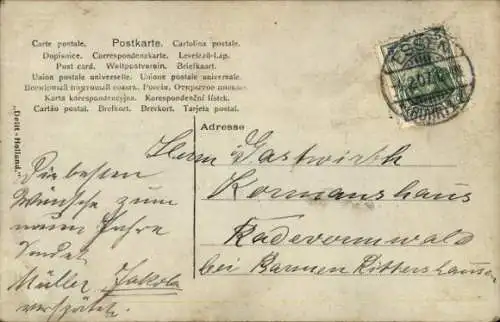 Carte postale. Postkarte. Cartolina postale.
Dopisnice. Correspondenzkarte. Levelező-Lap.
Post card. Weltpostverein. Briefkaart.
Union postale universelle. Unione postale universale.
Всемірный почтовый союзъ. Россія. Открытое письмо.
Karta korespondencyjna. Korespondenční lístek.
Cartão postal. Brefkort. Brevkort. Tarjeta postal.
Adresse
"Dritt-Holland."
Herrn Gastwirth
Kormanshaus
Radevormwald
bei Barmen Rittershausen
Die besten
Wünsche zum
neuen Jahre
sendet
Müller Jakob
verspätet.